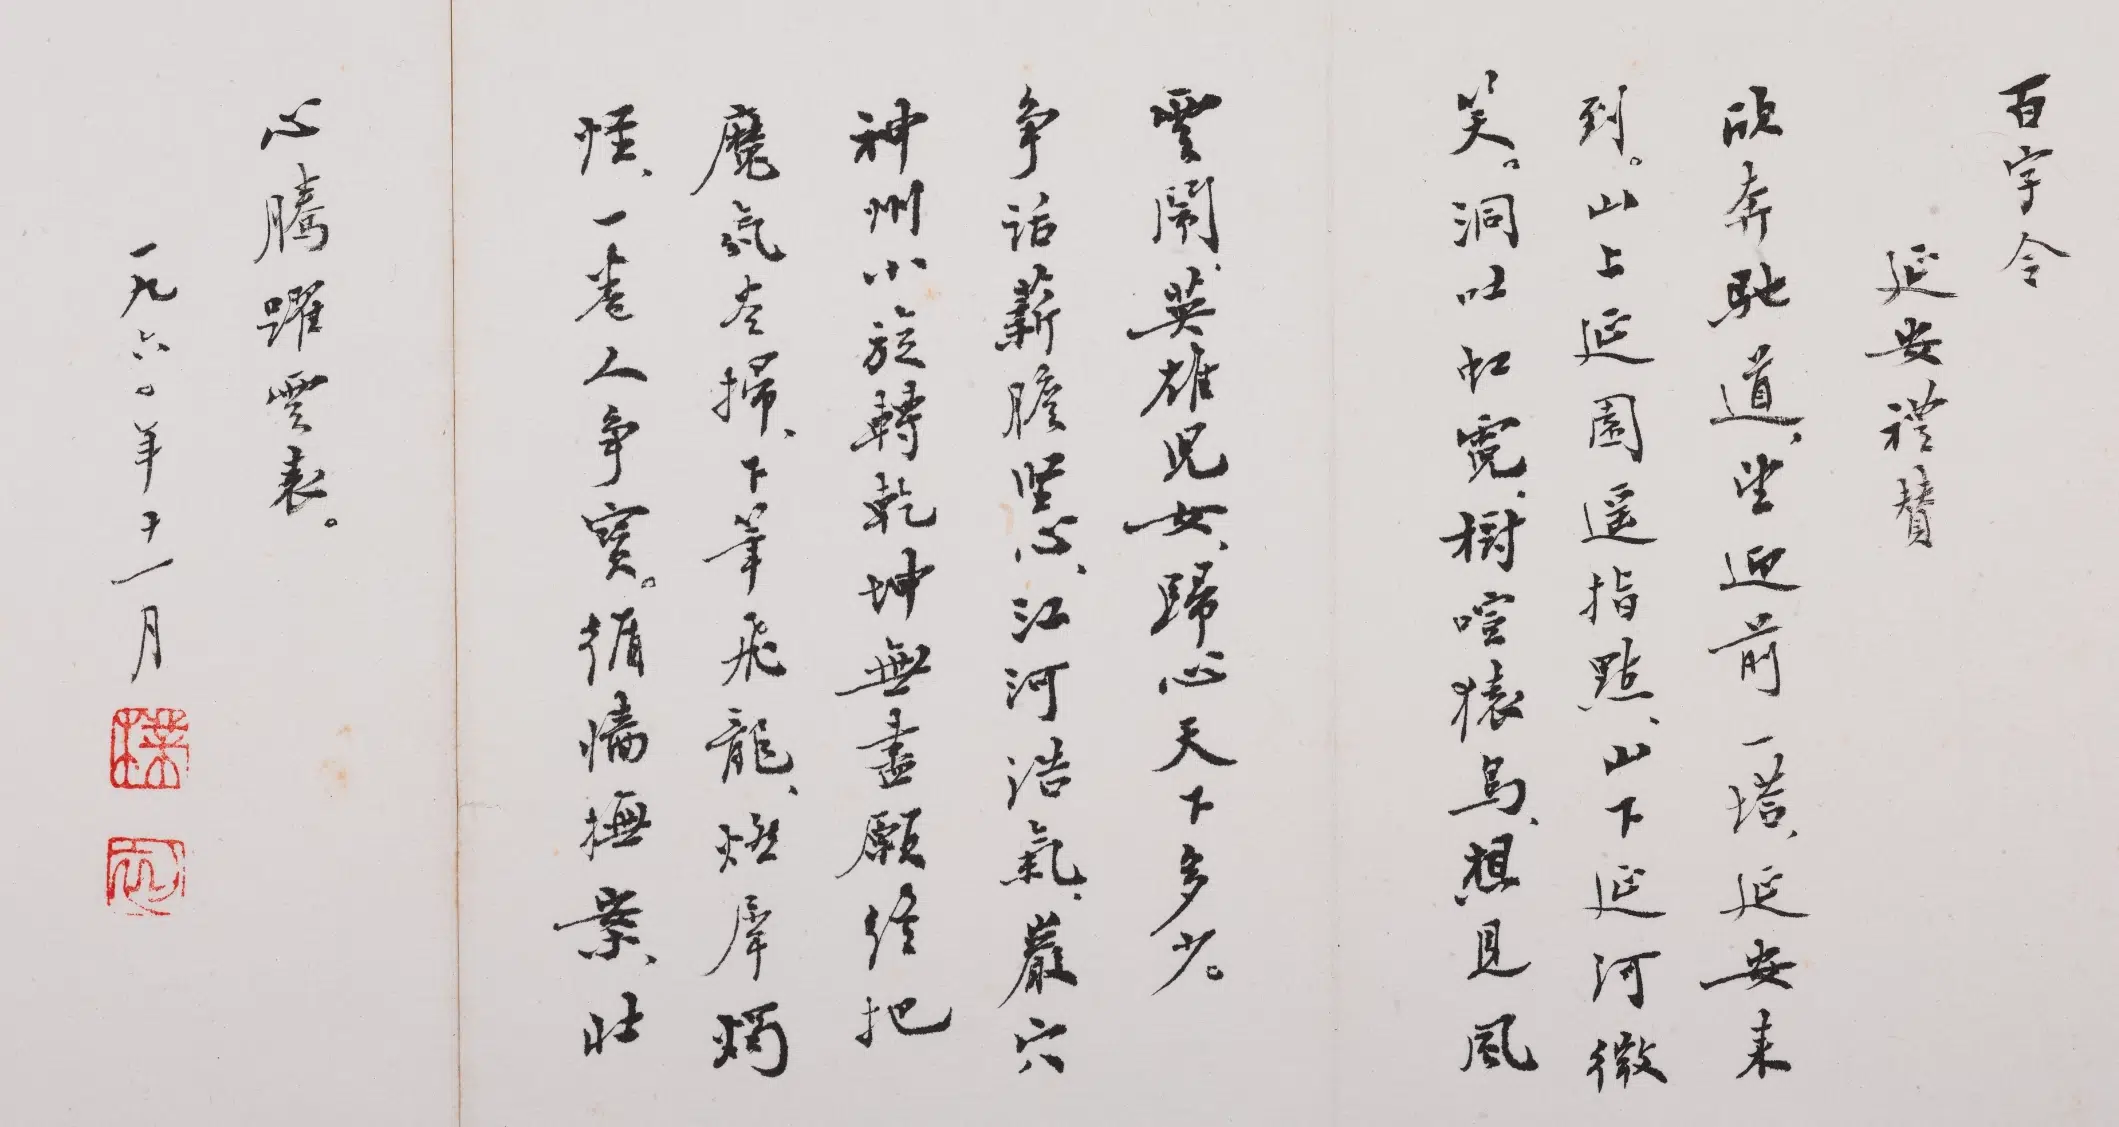 百字令
延安禮贊
欣奔馳道、望迎前一塔、延安来
到。山上延園遥指點、山下延河微
笑。洞吐虹霓、樹喧猿鳥、想見風
雲鬧、英雄児女、歸心天下多少。
争話薪膽坚心、江河浩氣、巖穴
神州小、旋轉乾坤無盡願、終把
魔氛左掃、下筆飛龍、燃犀燭
怪、一卷人争寶。循墻撫案、壮
心騰躍雲表。
一九六〇年十一月
樸
初